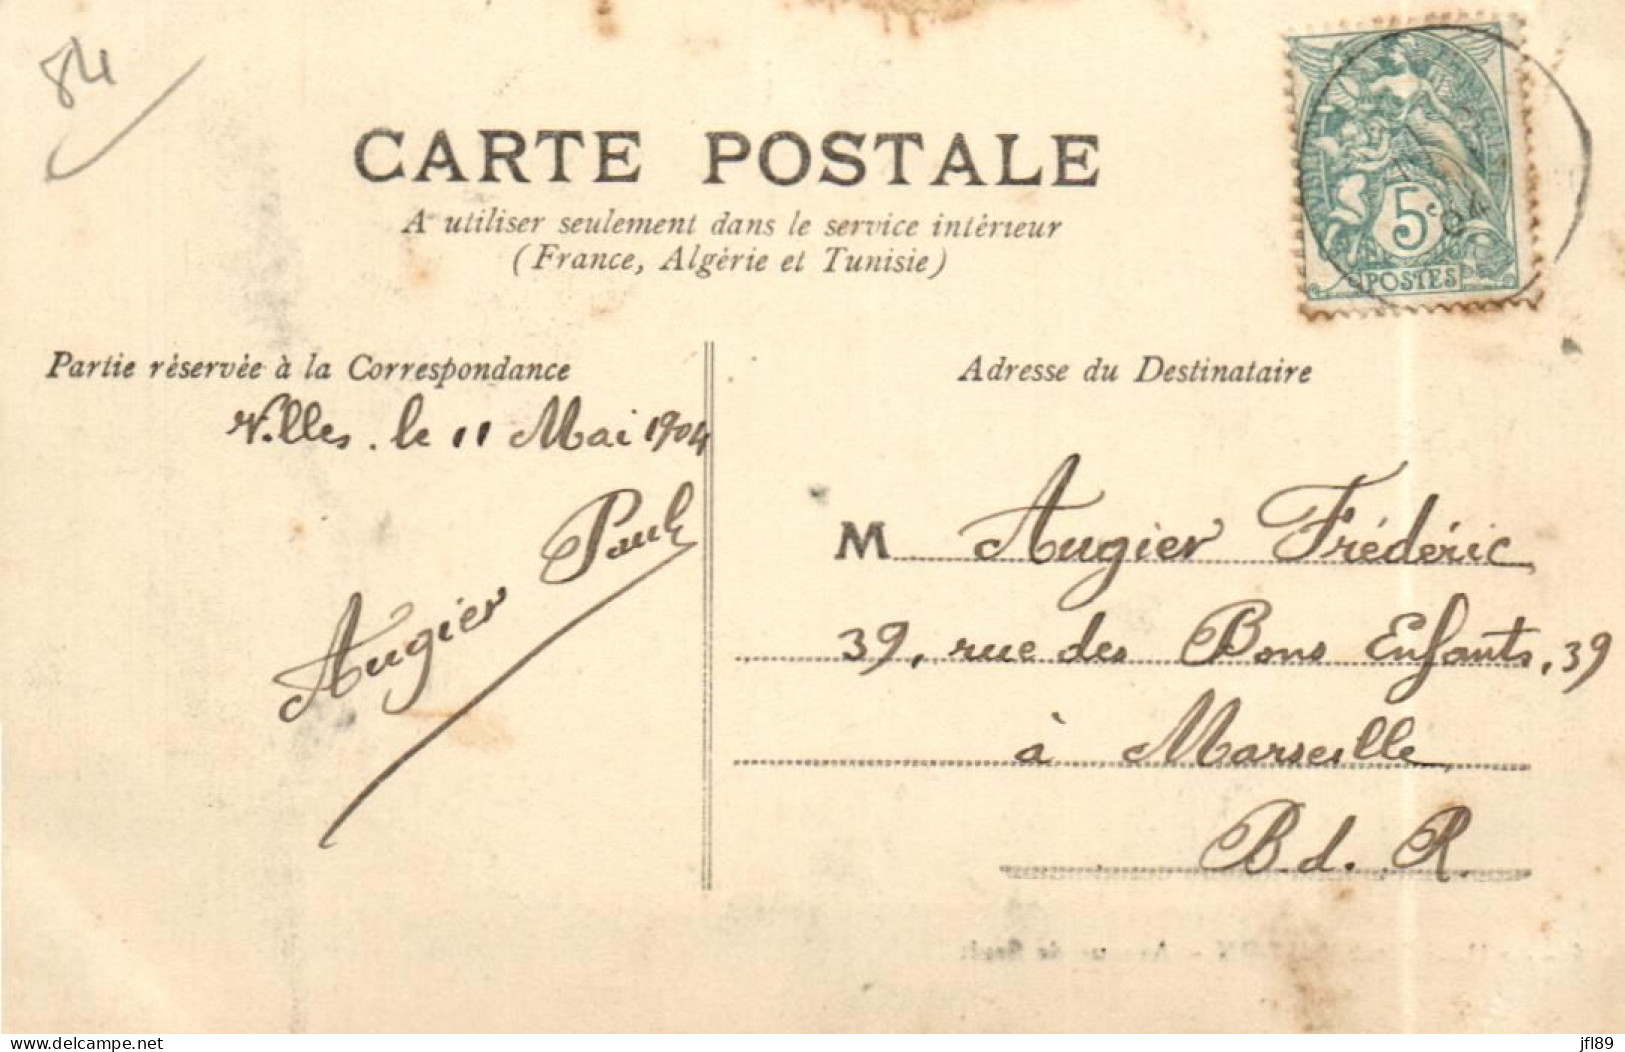 84
CARTE POSTALE
A utiliser seulement dans le service intérieur
(France, Algérie et Tunisie)
5c
POSTES
04
Partie réservée à la Correspondance
Adresse du Destinataire
Villes. le 11 Mai 1904
Augier Paul
M Augier Frédéric
39, rue des Bons Enfants, 39
à Marseille
B d. R.
delcampe.net
jfl89